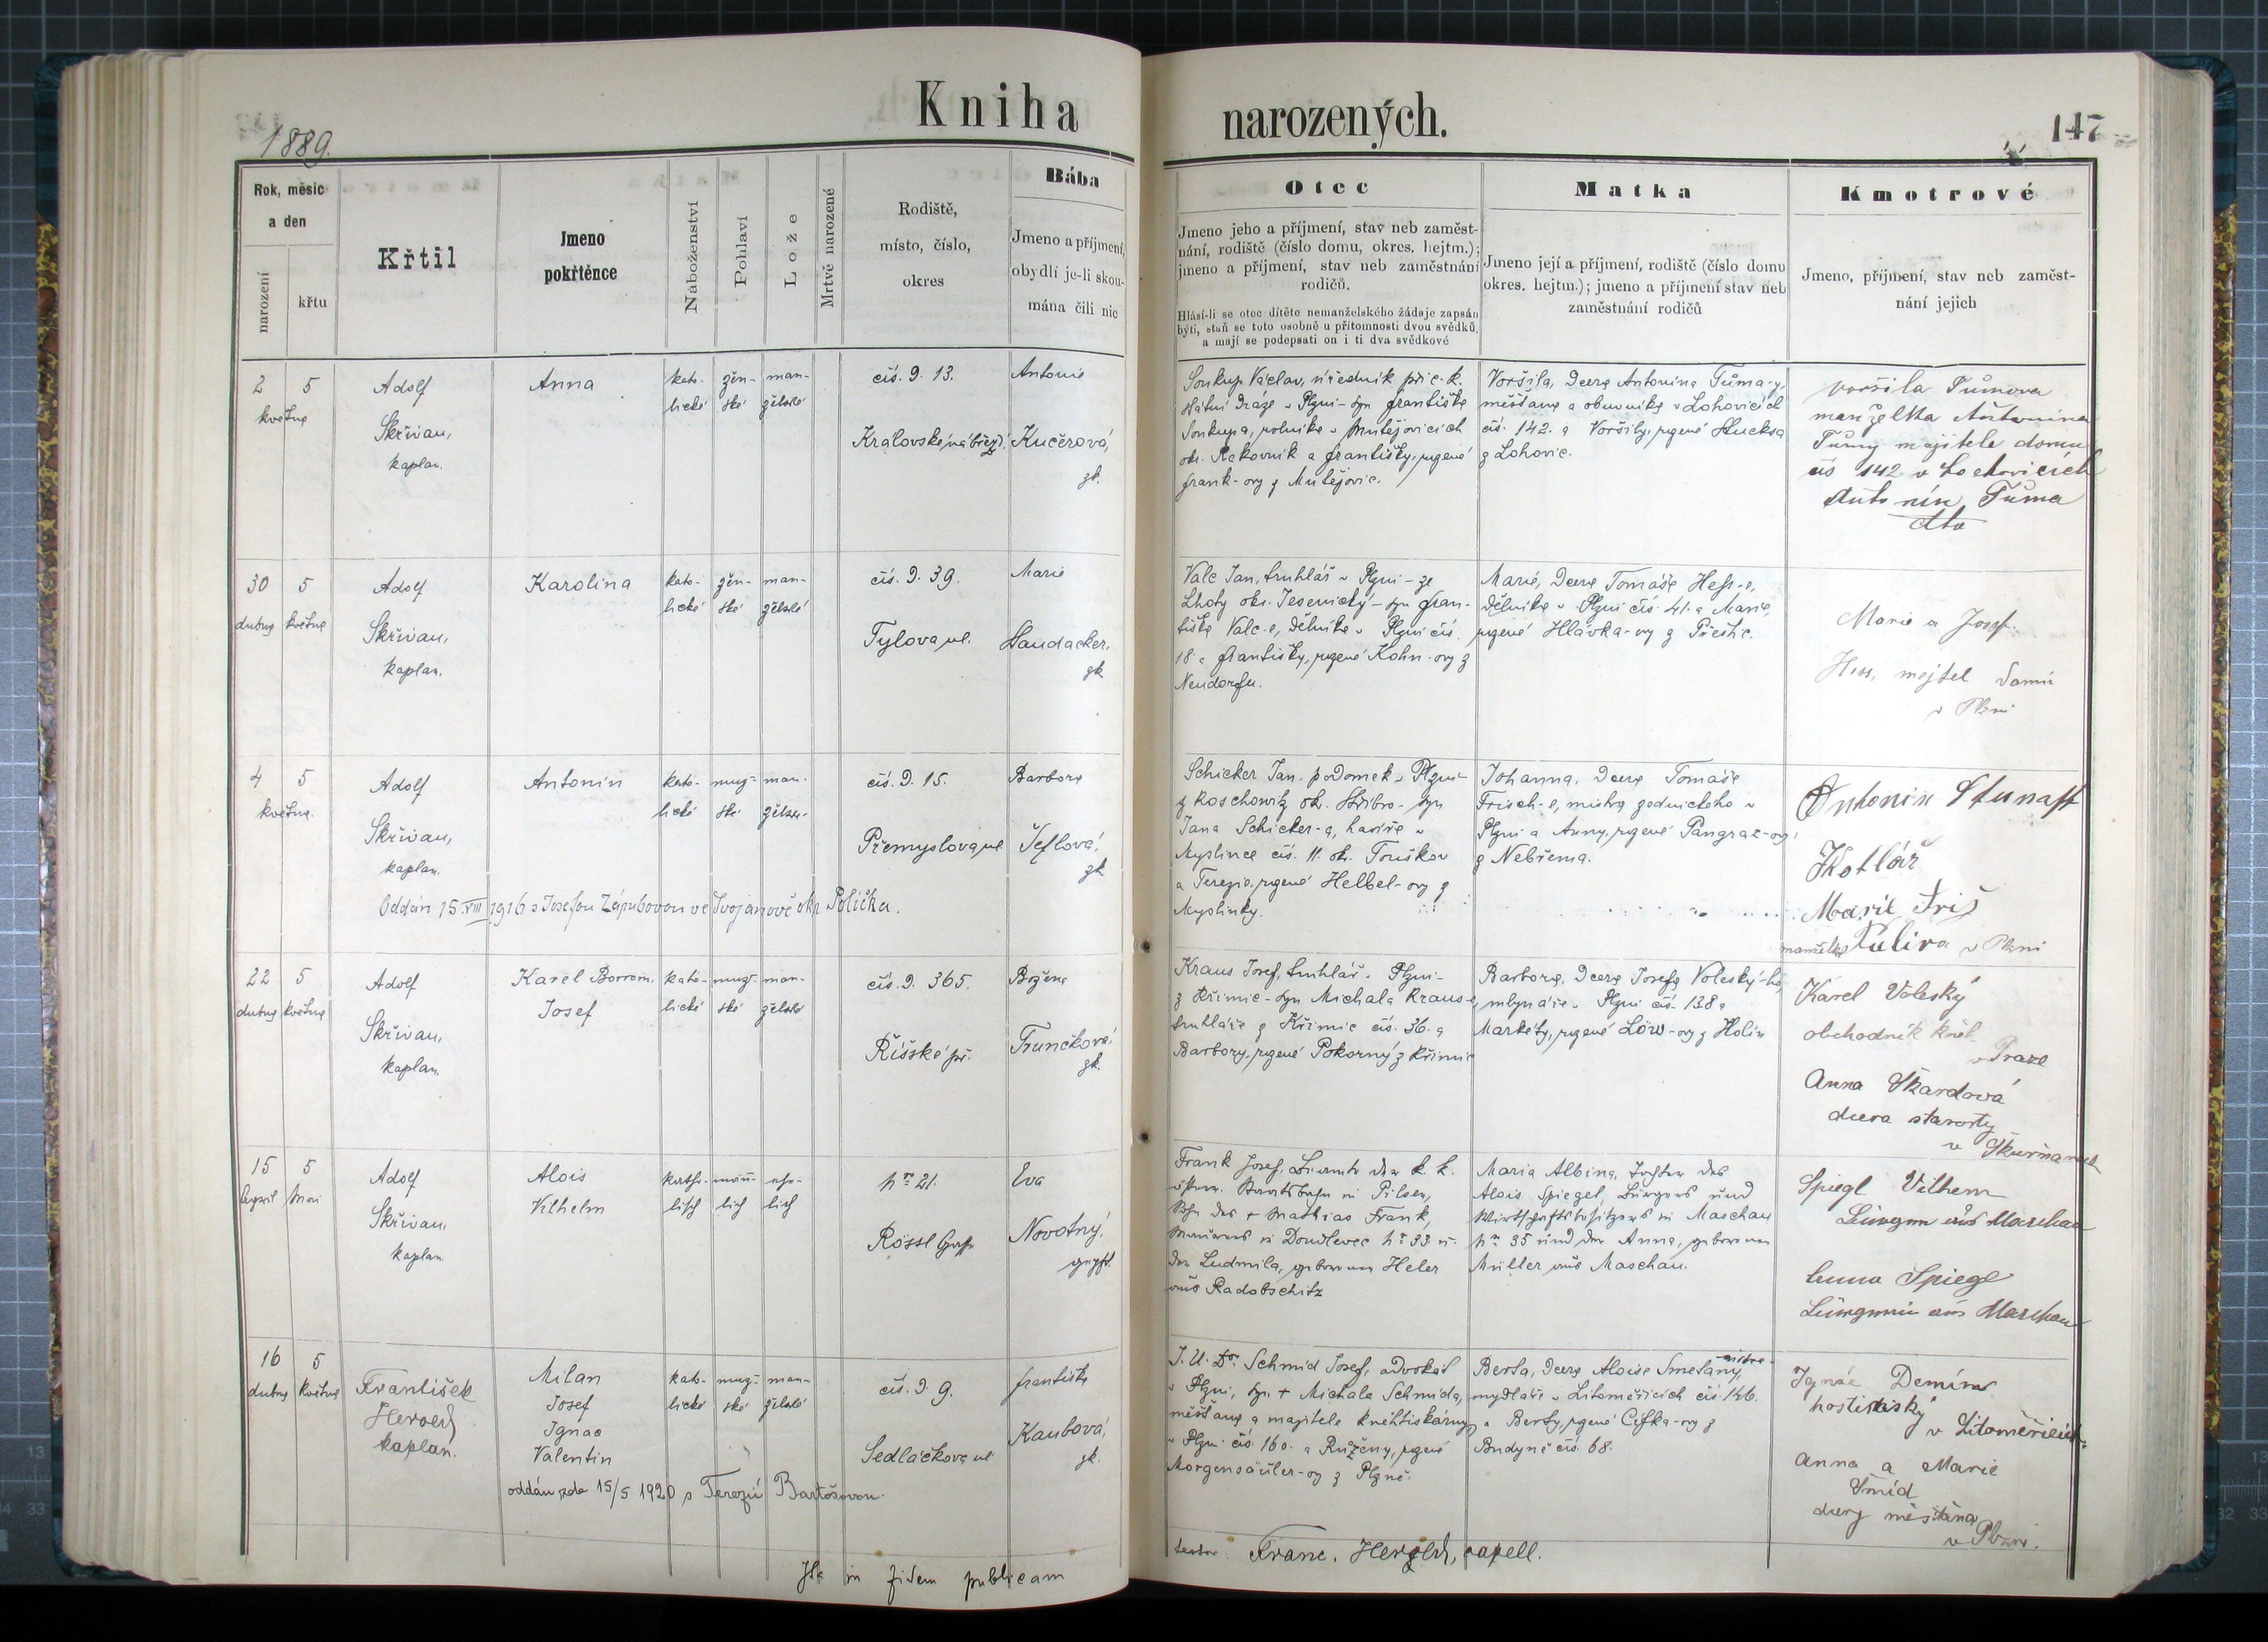 Kniha
narozených.
147
1889.
Rok, měsíc
a den
narození
křtu
Křtil
Jmeno
pokřtěnce
Náboženství
Pohlaví
Lože
Mrtvě narozené
Rodiště,
místo, číslo,
okres
Bába
Jmeno a příjmení,
obydlí je-li skou-
mána čili nic
Otec
Jmeno jeho a příjmení, stav neb zaměst-
nání, rodiště (číslo domu, okres. hejtm.);
jmeno a příjmení, stav neb zaměstnání
rodičů.
Hlásí-li se otec dítěte nemanželského žádaje zapsán
býti, staň se toto osobně u přítomnosti dvou svědků,
a mají se podepsati on i ti dva svědkové
Matka
Jmeno její a příjmení, rodiště (číslo domu
okres. hejtm.); jmeno a příjmení stav neb
zaměstnání rodičů
Kmotrové
Jmeno, příjmení, stav neb zaměst-
nání jejich
2 5
května
Adolf
Skřivan,
kaplan.
Anna
kato-
lické
žen-
ské
man-
želské
čís. d. 13.
Královské nábřeží
Antonie
Kučerová,
zk.
Soukup Václav, úředník při c. k.
státní dráze v Plzni - syn Františka
Soukupa, rolníka v Mutějovicích
okr. Rakovník a Františky, rozené
Frank-ovy z Mutějovic.
Voršila, dcera Antonína Tůma-y,
měšťana a obuvníka v Lohovicích
čís. 142. a Voršily, rozené Hucksa
z Lohovic.
Voršila Tůmova
manželka Antonina
Tůmy majitele domu
čís 142 v Lochovicích
Antonín Tůma
dto
30 5
dubna května
Adolf
Skřivan,
kaplan.
Karolina
kato-
lické
žen-
ské
man-
želské
čís. d. 39.
Tylova ul.
Marie
Haudacker,
zk
Valc Jan, truhlář v Plzni - ze
Lhoty okr. Jesenický - syn Fran-
tiška Valc-e, dělníka v Plzni čís.
18 a Františky, rozené Kohn-ovy z
Neudorfu.
Marie, dcera Tomáše Hess-e,
dělníka v Plzni čís. 41. a Marie,
rozené Hlávka-ovy z Přeštic.
Marie a Josef
Hess, majitel domu
v Plzni
4 5
května.
Adolf
Skřivan,
kaplan.
Antonín
kato-
lické
muž-
ské
man-
želské
čís. d. 15.
Přemyslova ul
Barbora
Teflová,
zk
Schicker Jan, podomek v Plzni -
z Roschowitz okr. Stříbro - syn
Jana Schicker-a, havíře v
Myslince čís. 11. okr. Touškov
a Terezie, rozené Helbel-ovy z
Myslinky.
Johanna, dcera Tomáše
Frisch-e, mistra zednického v
Plzni a Anny, rozené Pangraz-ovy
z Nebřema.
Antonin
Kotlář
Marie Friš
manželka v Plzni
Oddán 15. VIII 1916 s Josefou Zárubovou ve Svojanově okr. Polička.
22 5
dubna května
Adolf
Skřivan,
kaplan.
Karel Borrom.
Josef
kato-
lické
muž-
ské
man-
želské
čís. d. 365.
Říšské př.
Božena
Trunčková,
zk.
Kraus Josef, truhlář v Plzni -
z Křimic - syn Michala Kraus-e,
truhláře z Křimic čís. 36. a
Barbory, rozené Pokorný z Křimic
Barbora, dcera Josefa Voleský-ho,
mlynáře v Plzni čís. 138 a
Markéty, rozené Löw-ovy z Holin
Karel Voleský
obchodník
v Praze
Anna Škardová
dcera starosty
v Skvrňanech
15 5
April Mai
Adolf
Skřivan,
kaplan
Alois
Vilhelm
katho-
lisch
männ-
lich
ehe-
lich
Nro 21.
Rössl Gasse
Eva
Novotný,
geprft.
Frank Josef, Beamte der k. k.
österr. Staatsbahn in Pilsen,
Sohn des + Mathias Frank,
Maurers in Doudlevec Nro 33. u.
der Ludmila, geborenen Heler
aus Radobschitz
Maria Albina, Tochter des
Alois Spiegel, Bürgers und
Wirtschaftsbesitzers in Maschau
Nro 35 und der Anna, geborenen
Müller aus Maschau.
Spiegl Vilhem
Bürger aus Maschau
Anna Spiegl
Bürgerin aus Maschau
16 5
dubna května
František
Herold
kaplan.
Milan
Josef
Ignac
Valentin
kato-
lické
muž-
ské
man-
želské
čís. d. 9.
Sedláčkova ul
Františka
Kaubová,
zk.
J. U. Dr. Schmid Josef, advokát
v Plzni, syn + Michala Schmida,
měšťana a majitele knihtiskárny
v Plzni čís. 160. a Růženy, rozené
Morgensäuler-ovy z Plzně.
Berta, dcera Aloise Smetany, mistra
mydláře v Litoměřicích čís. 146.
a Berty, rozené Cifka-ovy z
Budyně čís. 68.
Ignác
hostinský
v Litoměřicích.
Anna a Marie
Šmíd
dcery měšťana
v Plzni.
oddán dne 15/5 1920 s Terezií Bartošovou.
Ita in fidem publicam
testor. Franc. Herold, capell.